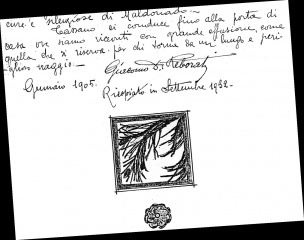 cure e splendide di Maldonado –
Cavano ci conduce fino alla porta di
casa ove siamo ricevuti con grande effusione, come
quella che si riserva per chi torna da un lungo e peri-
glioso viaggio. –
Giacomo Di Rebora
Gennaio 1905.
Ricopiato in Settembre 1952 –